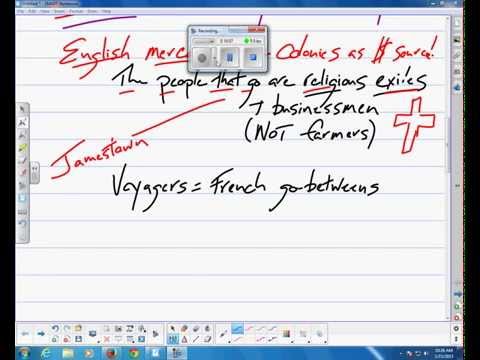 Recording...
English merc Colonies as $ source!
The people that go are religious exiles
→ businessmen
(NOT farmers)
Jamestown
Voyagers = French go-betweens